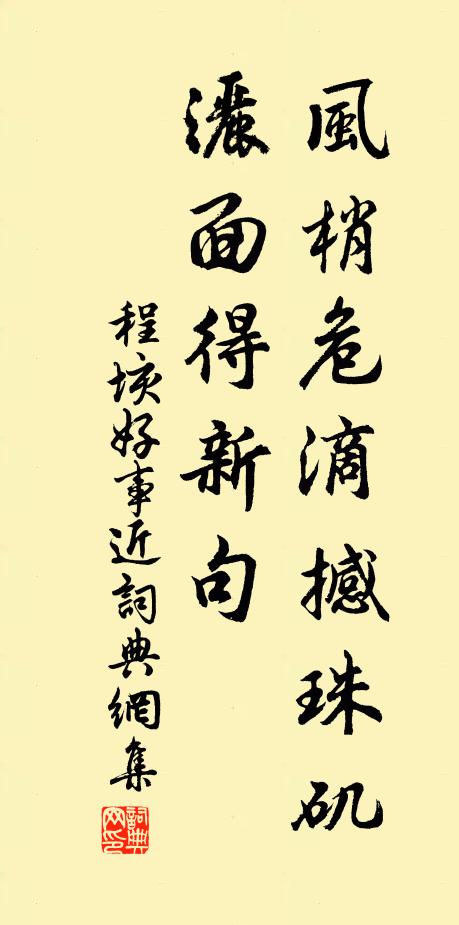 風梢危滴撼珠矶
灑面得新句
程垓好事近詞典網集
詞典网印